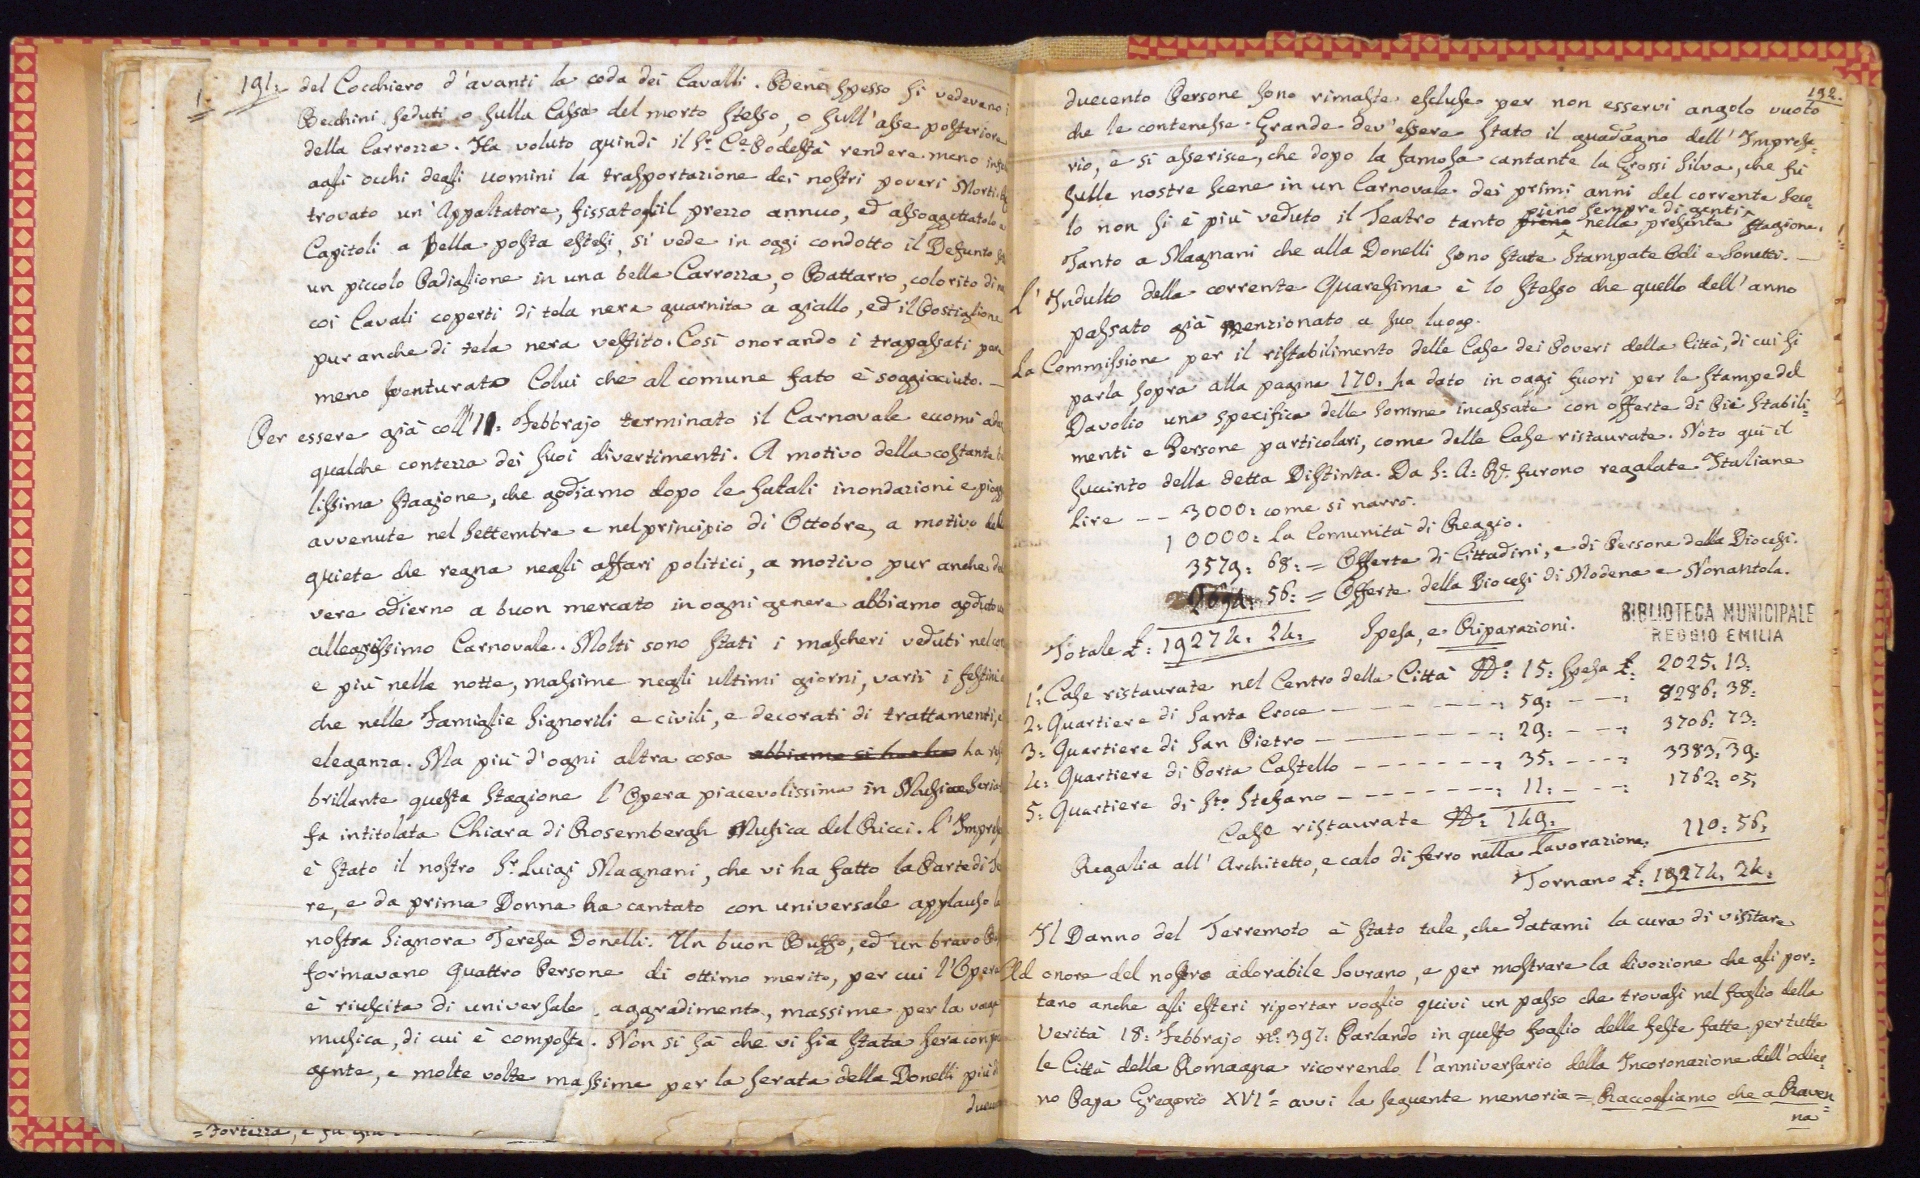 191.
del Cocchiero d'avanti la coda dei Cavalli. Bene spesso si vedevano i
Becchini seduti o sulla Cassa del morto stesso, o sull'asse posteriore
della Carrozza. Ha voluto quindi il Sr. Ce. Podestà rendere meno
agli occhi degli uomini la trasportazione dei nostri poveri Morti.
trovato un'Appaltatore, fissatogli il prezzo annuo, ed assoggettatolo a
Capitoli a bella posta estesi, si vede in oggi condotto il Defunto
un piccolo Padiglione in una bella Carrozza, o Battarro, colorito di
coi Cavali coperti di tela nera guarnita a giallo, ed il Postiglione
pur anche di tela nera vestito. Così onorando i trapassati pare
meno sventurato Colui che al comune fato è soggiacciuto. —
Per essere già coll'11: Febbrajo terminato il Carnovale eccomi a dar
qualche contezza dei suoi divertimenti. A motivo della costante
lissima stagione, che godiamo dopo le fatali inondazioni e piogge
avvenute nel Settembre e nel principio di Ottobre, a motivo della
quiete che regna negli affari politici, a motivo pur anche del
vere odierno a buon mercato in ogni genere abbiamo goduto un
allegrissimo Carnovale. Molti sono stati i mascheri veduti nel
e più nelle notte, massime negli ultimi giorni, varii i festini
che nelle Famiglie Signorili e civili, e decorati di trattamenti, e
eleganza. Ma più d'ogni altra cosa abbiamo si ha ha ha
brillante questa stagione l'Opera piacevolissima in Musica Seria
fa intitolata Chiara di Rosembergh Musica del Ricci. L'Impresario
è stato il nostro Sr. Luigi Magnani, che vi ha fatto la Parte di Te
re, e da prima Donna ha cantato con universale applauso la
nostra Signora Teresa Donelli. Un buon Buffo, ed un bravo
formavano quattro Persone di ottimo merito, per cui l'Opera
è riuscita di universale aggradimento, massime per la vaga
musica, di cui è composta. Non si sà che vi sia stata sera con poca
gente, e molte volte massime per la serata della Donelli più di
duecento
=Fortezza, e fu
192.
duecento Persone sono rimaste escluse per non esservi angolo vuoto
che le contenesse. Grande dev'essere stato il guadagno dell'Impresa=
rio, e si asserisce, che dopo la famosa cantante la Grossi Silva, che fù
sulle nostre scene in un Carnovale dei primi anni del corrente seco=
lo non si è più veduto il Teatro tanto pieno pieno sempre di genti nella presente stagione.
Tanto a Magnani che alla Donelli sono state stampate Odi e Sonetti. —
L'Indulto della corrente Quaresima è lo stesso che quello dell'anno
passato già menzionato a suo luogo.
La Commissione per il ristabilimento delle Case dei Poveri della Città, di cui si
parla sopra alla pagina 170: ha dato in oggi fuori per le stampe del
Davolio una specifica delle somme incassate con offerte di Pii stabili=
menti e Persone particolari, come delle Case ristaurate. Noto qui il
succinto della detta Distinta. Da S: A: R: furono regalate Italiane
Lire — — 3000: come si narrò.
10000: la Comunità di Reggio.
3579: 68: = Offerte di Cittadini, e di Persone della Diocesi.
2694: 56: = Offerte della Diocesi di Modena e Nonantola.
Totale £: 19274: 24: Spesa, e Riparazioni.
BIBLIOTECA MUNICIPALE
REGGIO EMILIA
1: Case ristaurate nel Centro della Città No: 15: Spesa £: 2025: 13:
2: Quartiere di Santa Croce — — — — : 59: — — : 8286: 38:
3: Quartiere di San Pietro — — — — : 29: — — : 3706: 73:
4: Quartiere di Porta Castello — — — — : 35: — — : 3383: 39:
5: Quartiere di Sto. Stefano — — — — : 11: — — : 1762: 05:
Case ristaurate No: 149:
Regalia all'Architetto, e calo di ferro nella lavorazione: 110: 56:
Tornano £: 19274: 24:
Il Danno del Terremoto è stato tale, che datami la cura di visitare
Ad onore del nostro adorabile Sovrano, e per mostrare la divozione che gli por=
tano anche gli esteri riportar voglio quivi un passo che trovasi nel foglio della
Verità 18: Febbrajo no: 397: Parlando in questo foglio delle feste fatte per tutte
le Città della Romagna ricorrendo l'anniversario della Incoronazione dell'odier=
no Papa Gregorio XVI° avvi la seguente memoria = Raccogliamo che a Raven=
na